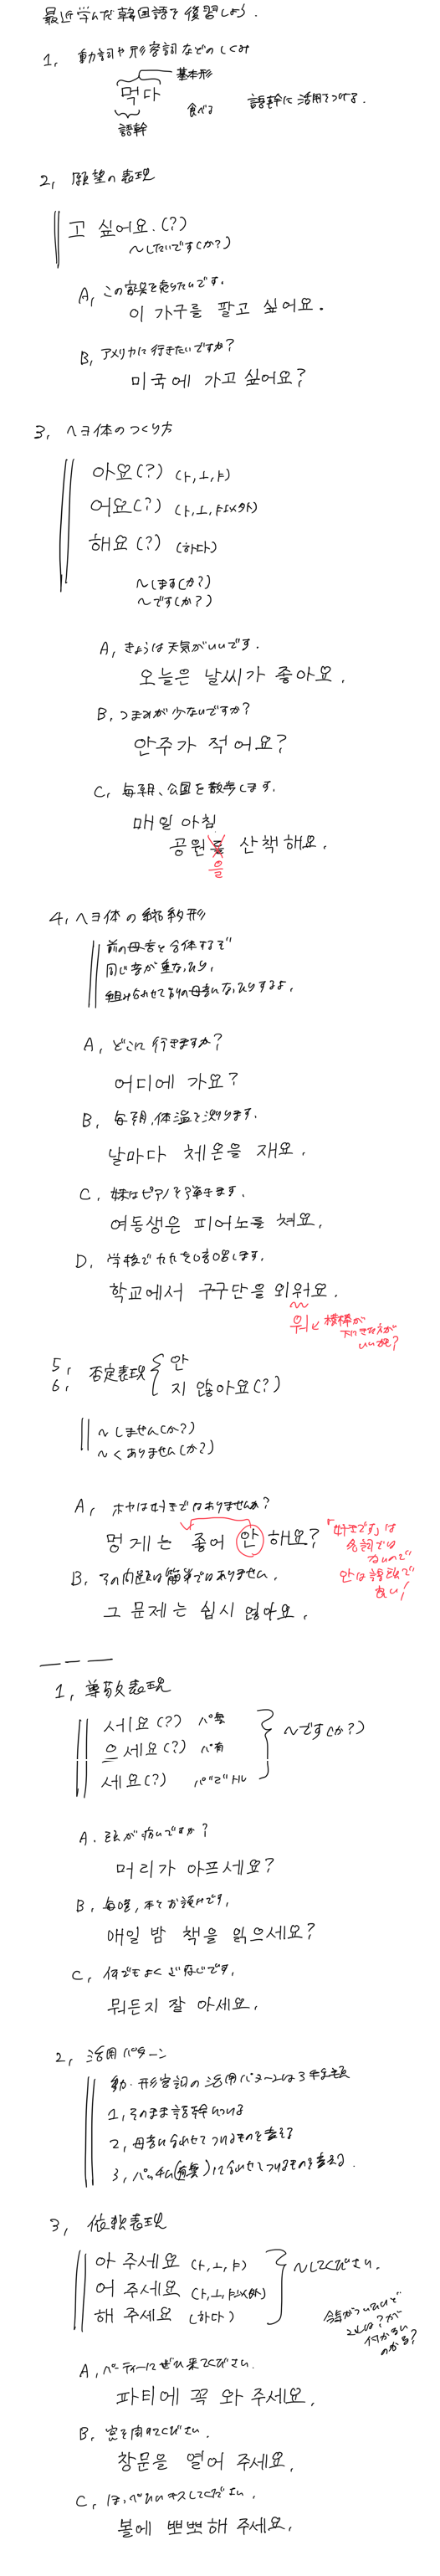 最近学んだ韓国語を復習しよう.
1, 動詞や形容詞などのしくみ
基本形
먹다
語幹
食べる
語幹に活用をつける.
2, 願望の表現
고 싶어요.(?)
〜したいです(か?)
A, この家具を売りたいです.
이 가구를 팔고 싶어요.
B, アメリカに行きたいですか?
미국에 가고 싶어요?
3, ヘヨ体のつくり方
아요(?) (ㅏ,ㅗ,ㅑ)
어요(?) (ㅏ,ㅗ,ㅑ以外)
해요(?) (하다)
〜します(か?)
〜です(か?)
A, きょうは天気がいいです.
오늘은 날씨가 좋아요.
B, つまみが少ないですか?
안주가 적어요?
C, 毎朝、公園を散歩します.
매일 아침
공원를 산책해요.
을
4, ヘヨ体の縮約形
前の母音と合体するぞ
同じ音が重なったり,
組み合わせて別の母音になったりするよ.
A, どこに行きますか?
어디에 가요?
B, 毎朝,体温を測ります.
날마다 체온을 재요.
C, 妹はピアノを弾きます.
여동생은 피어노를 쳐요.
D, 学校で九九を暗唱します.
학교에서 구구단을 외워요.
워 ← 横棒が
下にきた方が
いいかも?
5,
6, 否定表現 안
지 않아요(?)
〜しません(か?)
〜くありません(か?)
A, ホヤは好きではありませんか?
멍게는 좋어 안 해요?
「好きです」は
名詞では
ないので
안は語頭で
良い!
B, その問題は簡単ではありません.
그 문제는 쉽시 않아요.
ーーー
1, 尊敬表現
세요(?) パ無
으세요(?) パ有
세요(?) パ"ㄹ"トル
〜です(か?)
A. 頭が痛いですか?
머리가 아프세요?
B, 毎晩,本をお読みです.
매일 밤 책을 읽으세요?
C, 何でもよくご存じです.
뭐든지 잘 아세요.
2, 活用パターン
動・形容詞の活用パターンは3種類
1, そのまま語幹につける
2, 母音に合わせてつけるものを変える
3, パッチム(有無)に合わせてつけるものを変える.
3, 依頼表現
아 주세요 (ㅏ,ㅗ,ㅑ)
어 주세요 (ㅏ,ㅗ,ㅑ以外)
해 주세요 (하다)
〜してください.
A, パーティーにぜひ来てください.
파티에 꼭 와 주세요.
B, 窓を開けてください.
창문을 열어 주세요.
C, ほっぺたにキスしてください.
볼에 뽀뽀해 주세요.